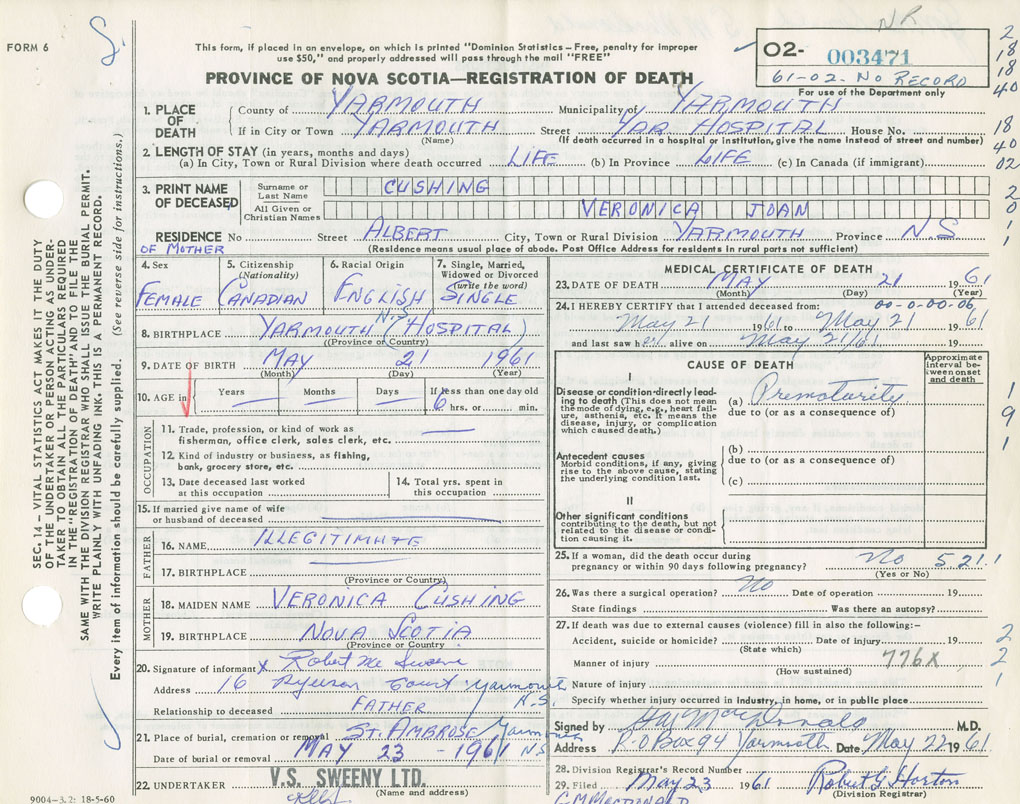 FORM 6
NR
This form, if placed in an envelope, on which is printed "Dominion Statistics – Free, penalty for improper
use $50," and properly addressed will pass through the mail "FREE"
PROVINCE OF NOVA SCOTIA—REGISTRATION OF DEATH
O2- 003471
61-02- NO RECORD
For use of the Department only
2
18
18
40
18
40
02
2
0
1
1
1
9
1
2
2
1
SEC. 14 – VITAL STATISTICS ACT MAKES IT THE DUTY
OF THE UNDERTAKER OR PERSON ACTING AS UNDER-
TAKER TO OBTAIN ALL THE PARTICULARS REQUIRED
IN THE "REGISTRATION OF DEATH" AND TO FILE THE
SAME WITH THE DIVISION REGISTRAR WHO SHALL ISSUE THE BURIAL PERMIT.
WRITE PLAINLY WITH UNFADING INK. THIS IS A PERMANENT RECORD.
Every item of information should be carefully supplied. (See reverse side for instructions.)
1. PLACE OF DEATH
County of YARMOUTH Municipality of YARMOUTH
If in City or Town YARMOUTH Street YAR HOSPITAL House No.
(Name) (If death occurred in a hospital or institution, give the name instead of street and number)
2. LENGTH OF STAY (in years, months and days)
(a) In City, Town or Rural Division where death occurred LIFE (b) In Province LIFE (c) In Canada (if immigrant)
3. PRINT NAME OF DECEASED
Surname or Last Name CUSHING
All Given or Christian Names VERONICA JOAN
RESIDENCE No Street ALBERT City, Town or Rural Division YARMOUTH Province N.S
OF MOTHER (Residence means usual place of abode. Post Office Address for residents in rural parts not sufficient)
4. Sex FEMALE
5. Citizenship (Nationality) CANADIAN
6. Racial Origin ENGLISH
7. Single, Married, Widowed or Divorced (write the word) SINGLE
8. BIRTHPLACE YARMOUTH N.S (HOSPITAL)
(Province or Country)
9. DATE OF BIRTH MAY 21 1961
(Month) (Day) (Year)
10. AGE in Years Months Days If less than one day old
6 hrs. or min.
OCCUPATION
11. Trade, profession, or kind of work as
fisherman, office clerk, sales clerk, etc.
12. Kind of industry or business, as fishing,
bank, grocery store, etc.
13. Date deceased last worked
at this occupation
14. Total yrs. spent in
this occupation
15. If married give name of wife
or husband of deceased
FATHER
16. NAME ILLEGITIMATE
17. BIRTHPLACE
(Province or Country)
MOTHER
18. MAIDEN NAME VERONICA CUSHING
19. BIRTHPLACE NOVA SCOTIA
(Province or Country
20. Signature of informant X Robert
Address 16 Ryerson Court Yarmouth
N.S.
Relationship to deceased FATHER
21. Place of burial, cremation or removal ST. AMBROSE Yarmouth
Date of burial or removal MAY 23 - 1961 N.S
22. UNDERTAKER V.S. SWEENY LTD.
(Name and address)
9004-3.2: 18-5-60
MEDICAL CERTIFICATE OF DEATH
23. DATE OF DEATH MAY 21 1961
(Month) (Day) (Year)
24. I HEREBY CERTIFY that I attended deceased from: 00-0-00-06
May 21 1961 to May 21 1961
and last saw h er alive on May 21/61 19
CAUSE OF DEATH
Approximate
interval be-
tween onset
and death
I
Disease or condition directly lead-
ing to death (This does not mean
the mode of dying, e.g., heart fail-
ure, asthenia, etc. It means the
disease, injury, or complication
which caused death.)
(a) Prematurity
due to (or as a consequence of)
Antecedent causes
Morbid conditions, if any, giving
rise to the above cause, stating
the underlying condition last.
(b)
due to (or as a consequence of)
(c)
II
Other significant conditions
contributing to the death, but not
related to the disease or condi-
tion causing it.
25. If a woman, did the death occur during
pregnancy or within 90 days following pregnancy? No 5.21.1
(Yes or No)
26. Was there a surgical operation? No Date of operation 19
State findings Was there an autopsy?
27. If death was due to external causes (violence) fill in also the following:–
Accident, suicide or homicide? Date of injury 19
(State which)
Manner of injury 776X
(How sustained)
Nature of injury
Specify whether injury occurred in Industry, in home, or in public place
Signed by MacDonald M.D.
Address P.O Box 94 Yarmouth Date May 22 1961
28. Division Registrar's Record Number
29. Filed May 23 1961 Robert G. Horton
(Division Registrar)
C M MACDONALD